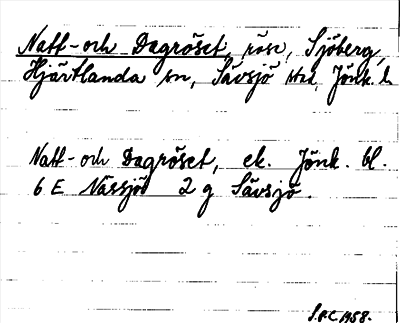 Natt- och Dagröset, röse, Sjöberg,
Hjärtlanda sn, Sävsjö std, Jönk. l.
Natt- och Dagröset, ek. Jönk. bl.
6 E Nässjö 2 g Sävsjö.
1958.